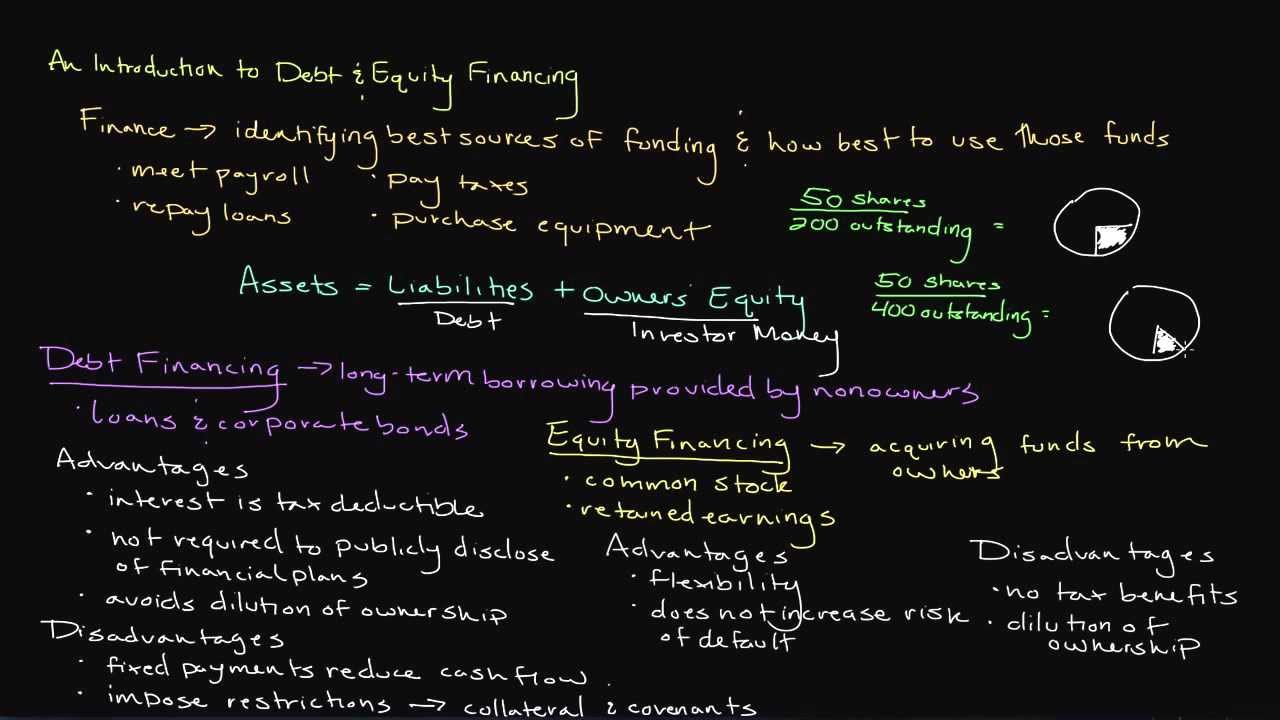 An Introduction to Debt & Equity Financing
Finance → identifying best sources of funding & how best to use those funds
· meet payroll
· pay taxes
· repay loans
· purchase equipment
50 shares
200 outstanding =
50 shares
400 outstanding =
Assets = Liabilities + Owners' Equity
Debt
Investor Money
Debt Financing → long-term borrowing provided by nonowners
· loans & corporate bonds
Advantages
· interest is tax deductible
· not required to publicly disclose
of financial plans
· avoids dilution of ownership
Disadvantages
· fixed payments reduce cash flow
· impose restrictions → collateral & covenants
Equity Financing → acquiring funds from
owners
· common stock
· retained earnings
Advantages
· flexibility
· does not increase risk
of default
Disadvantages
· no tax benefits
· dilution of
ownership